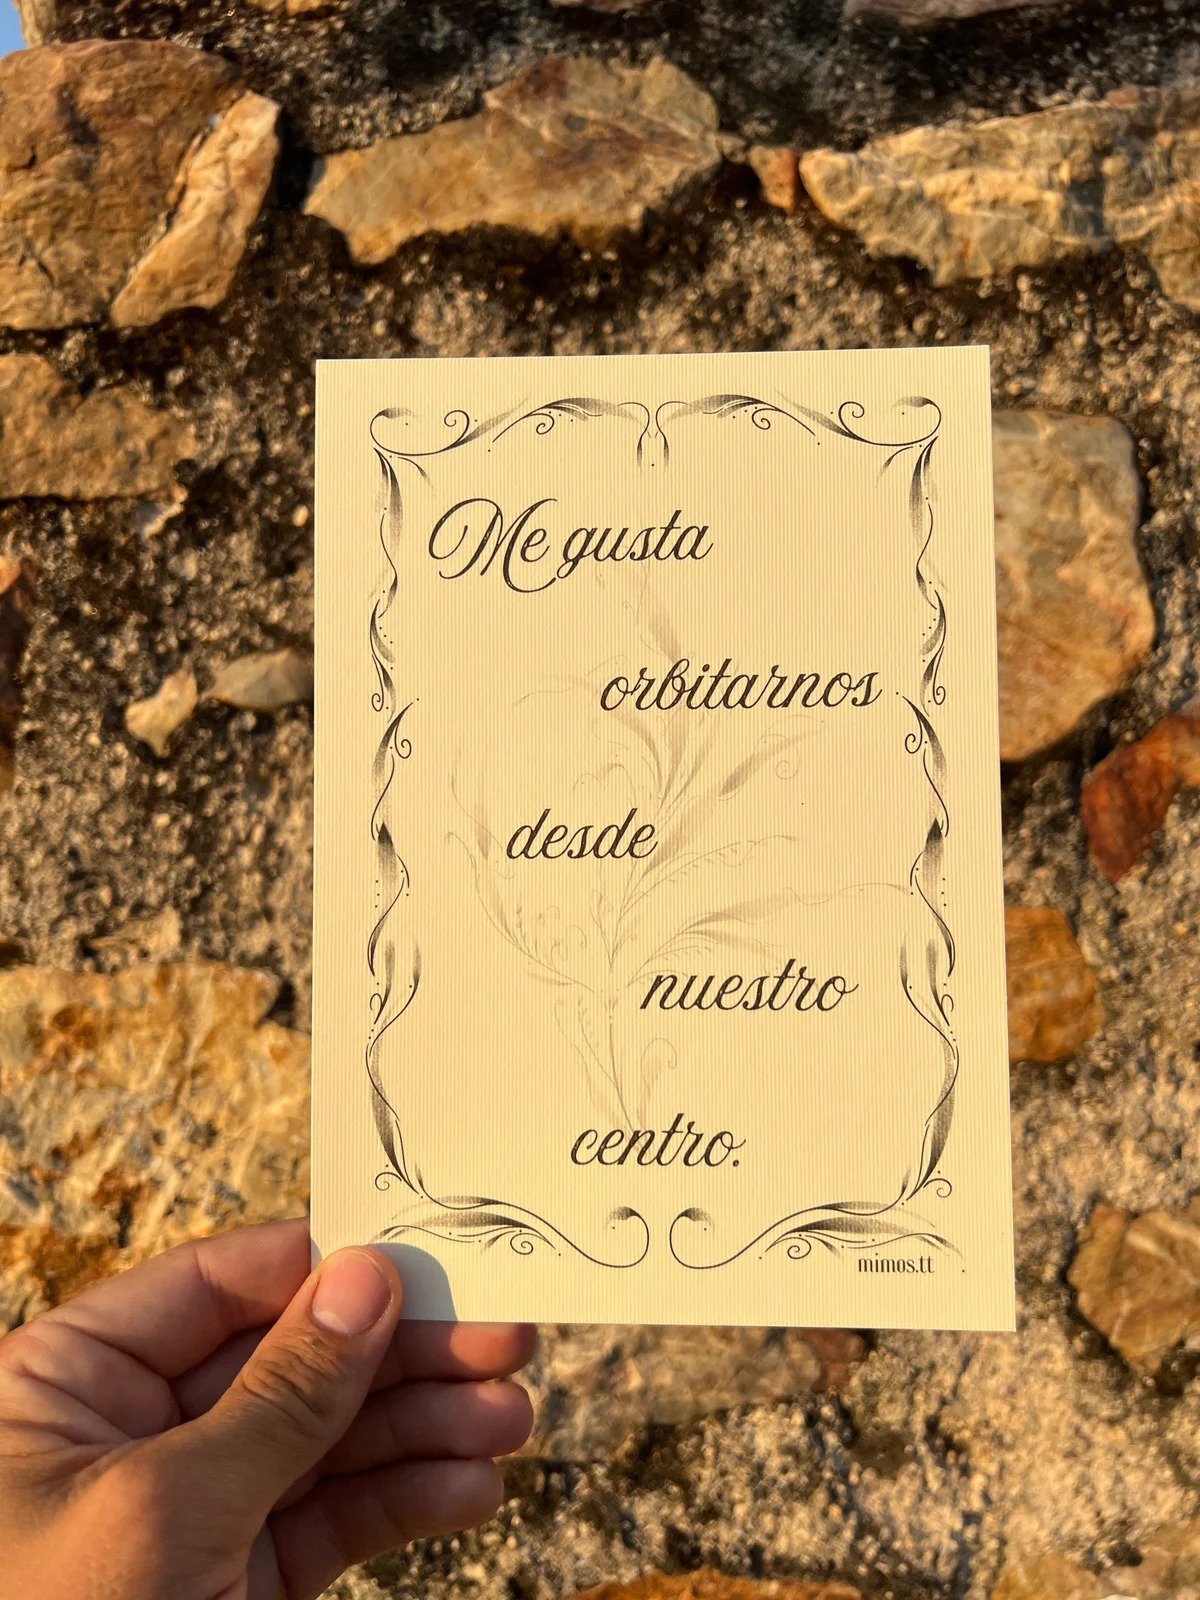 Me gusta
orbitarnos
desde
nuestro
centro.
mimos.tt